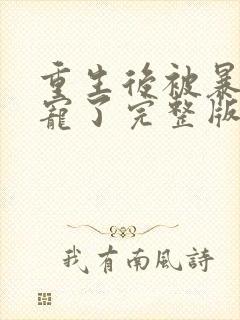 重生後被暴
寵了完整版
我有南風詩